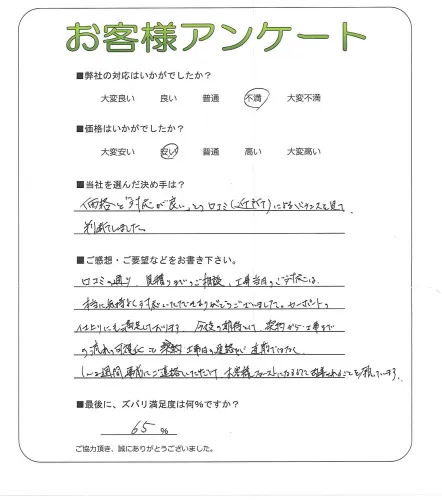 お客様アンケート
■弊社の対応はいかがでしたか？
大変良い 良い 普通 不満 大変不満
■価格はいかがでしたか？
大変安い 安い 普通 高い 大変高い
■当社を選んだ決め手は？
価格と「対応が良い」との口コミ(近所で)によるバランスを見て、
判断しました。
■ご感想・ご要望などをお書き下さい。
口コミの通り、見積りからのご相談、工事当日のご対応は、
本当に気持ちよく対応いただきありがとうございました。カーポートの
仕上りにも満足しております。今後の期待として、契約から工事まで
の流れの可視化と契約工事日の連絡が直前ではなく、
1〜2週間事前にご連絡いただけ
■最後に、ズバリ満足度は何%ですか？
65 %
ご協力頂き、誠にありがとうございました。